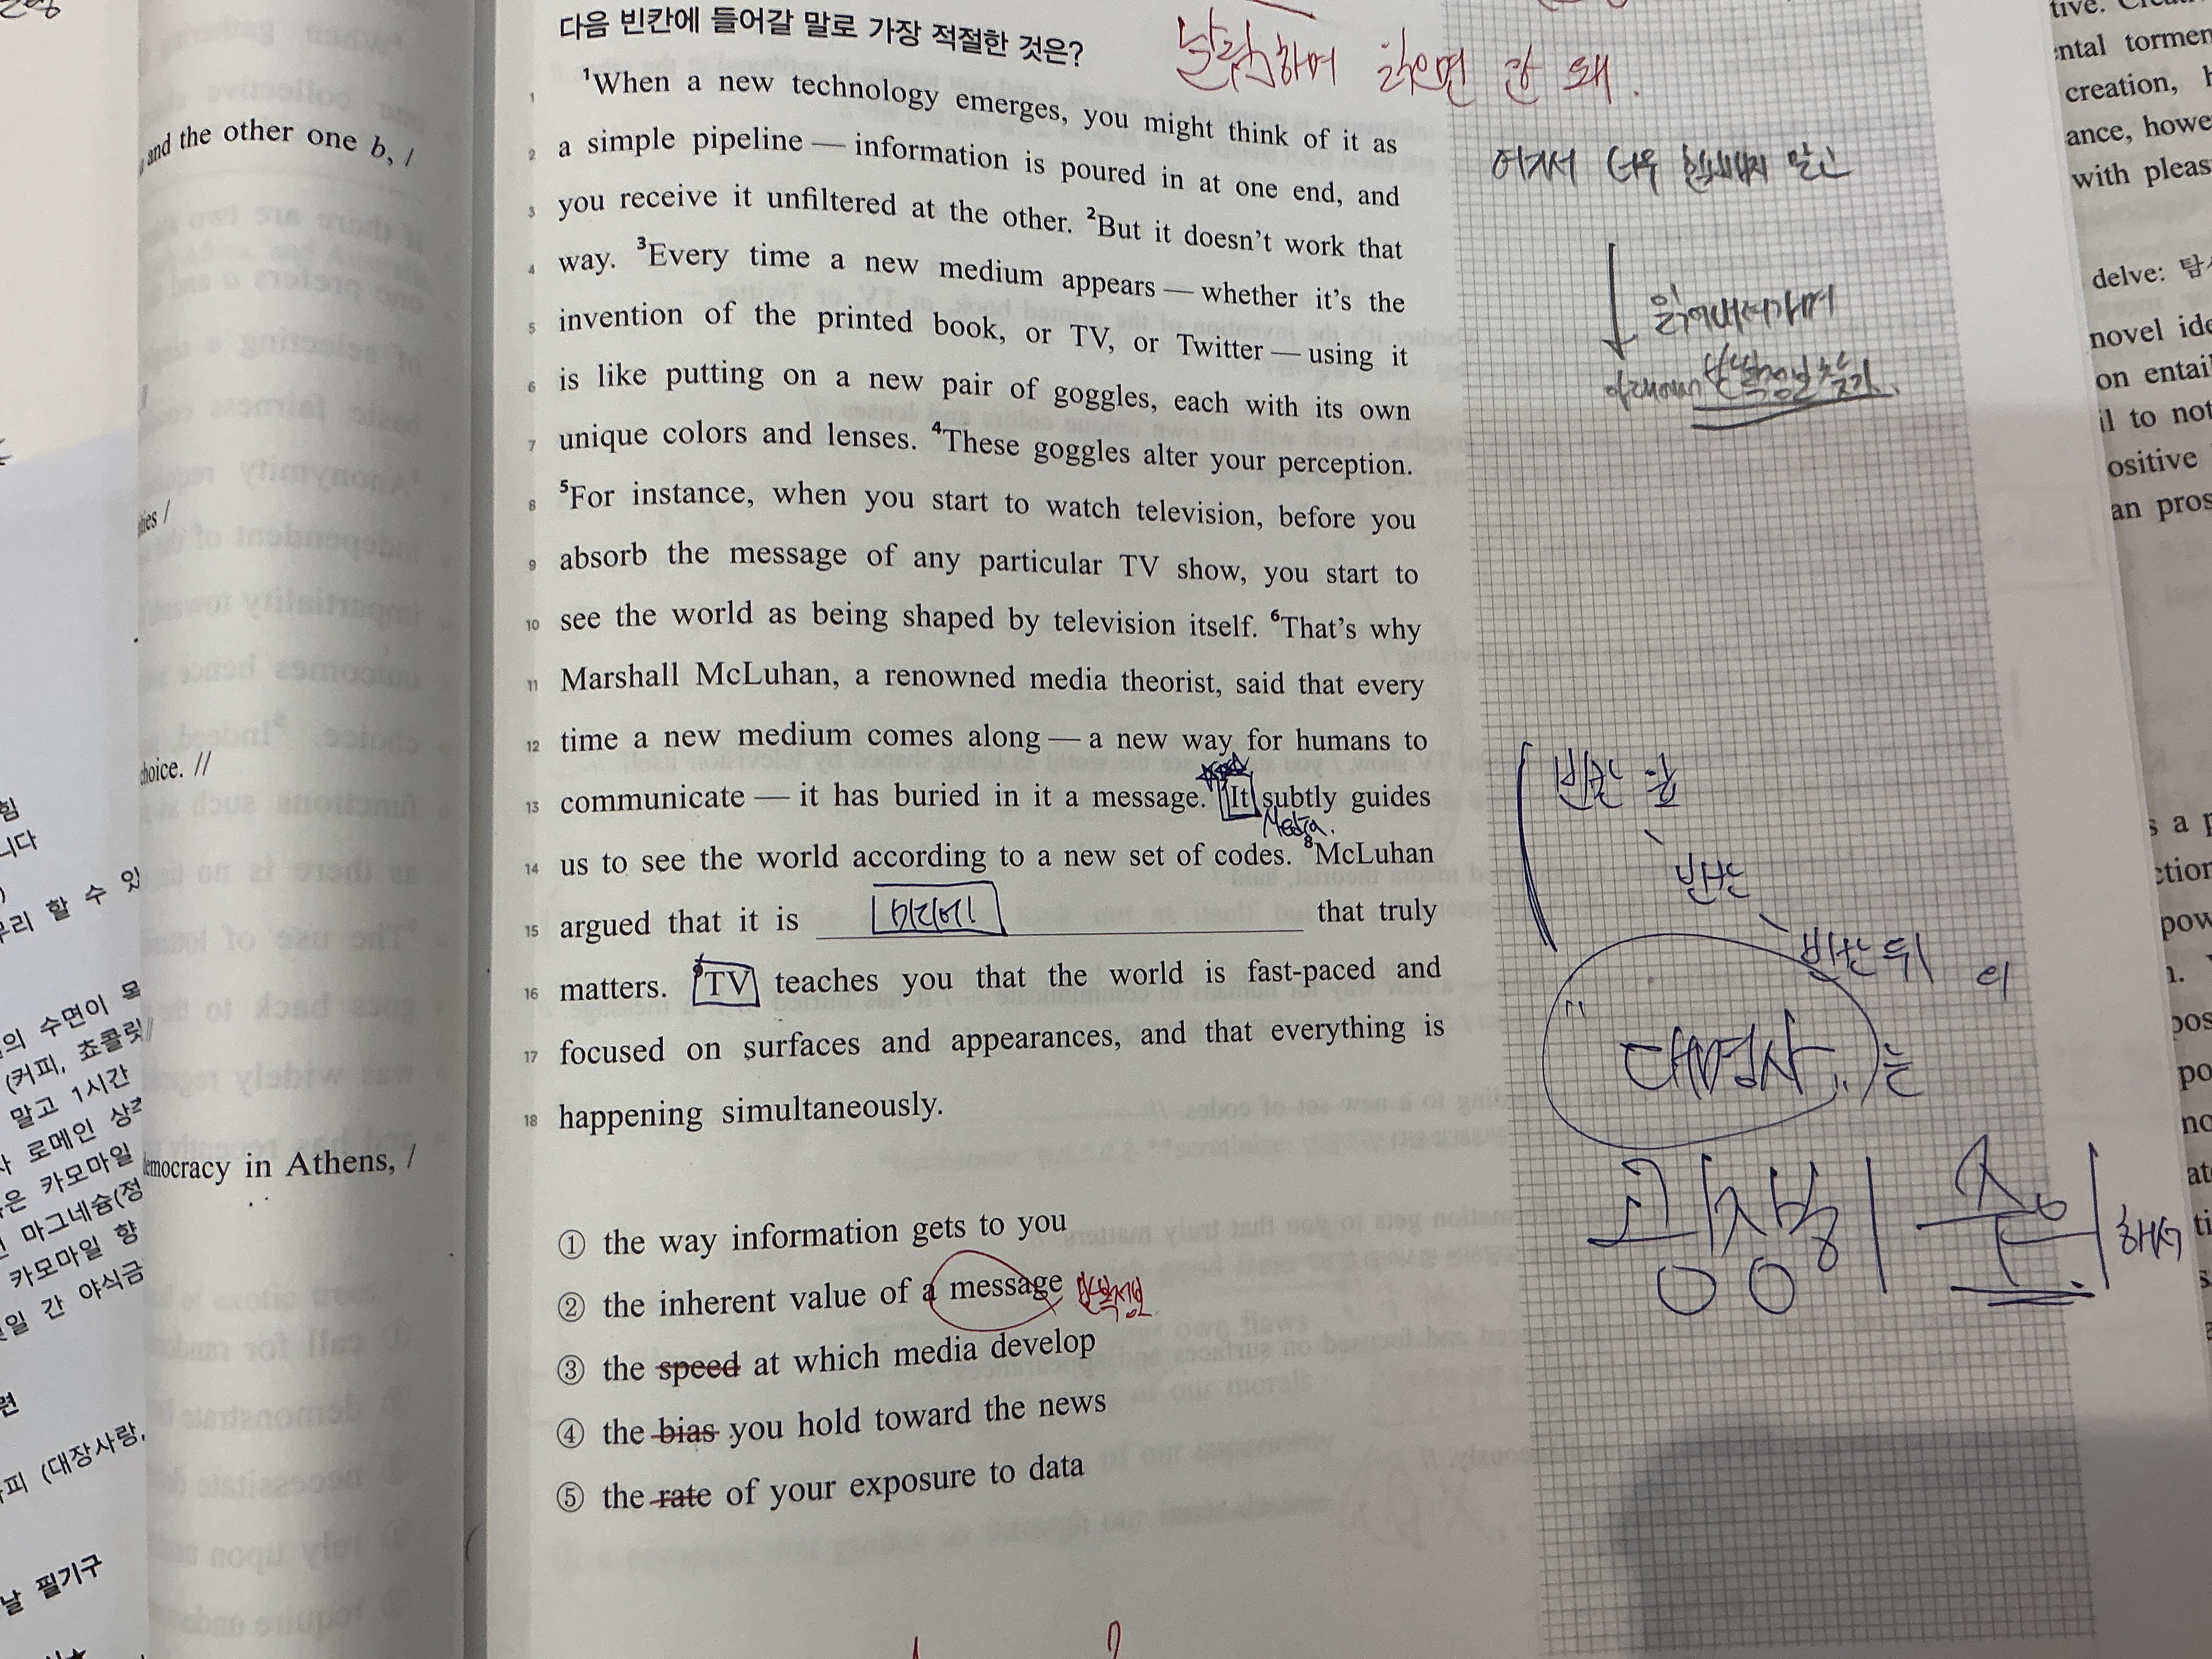 다음 빈칸에 들어갈 말로 가장 적절한 것은?
1 ¹When a new technology emerges, you might think of it as
2 a simple pipeline — information is poured in at one end, and
3 you receive it unfiltered at the other. ²But it doesn't work that
4 way. ³Every time a new medium appears — whether it's the
5 invention of the printed book, or TV, or Twitter — using it
6 is like putting on a new pair of goggles, each with its own
7 unique colors and lenses. ⁴These goggles alter your perception.
8 ⁵For instance, when you start to watch television, before you
9 absorb the message of any particular TV show, you start to
10 see the world as being shaped by television itself. ⁶That's why
11 Marshall McLuhan, a renowned media theorist, said that every
12 time a new medium comes along — a new way for humans to
13 communicate — it has buried in it a message. It subtly guides
Media.
14 us to see the world according to a new set of codes. ⁸McLuhan
15 argued that it is 미디어 that truly
16 matters. ⁹TV teaches you that the world is fast-paced and
17 focused on surfaces and appearances, and that everything is
18 happening simultaneously.
① the way information gets to you
② the inherent value of a message
③ the speed at which media develop
④ the bias you hold toward the news
⑤ the rate of your exposure to data
여기서 너무 힘빼지 말고
읽어내려가며
빈칸 앞
빈칸
빈칸 뒤 의
"대명사"는
굉장히 중요
해서
and the other one b, /
choice. //
emocracy in Athens, /
힘
니다
우리 할 수 있
의 수면이 몰
(커피, 초콜릿
말고 1시간
로메인 상추
은 카모마일
마그네슘(정
카모마일 향
일 간 야식금
련
피 (대장사랑,
날 필기구
tive.
ntal torment
creation,
ance, howe
with pleas
delve: 탐
novel ide
on entail
il to not
ositive
an pros
s a p
ction
pow